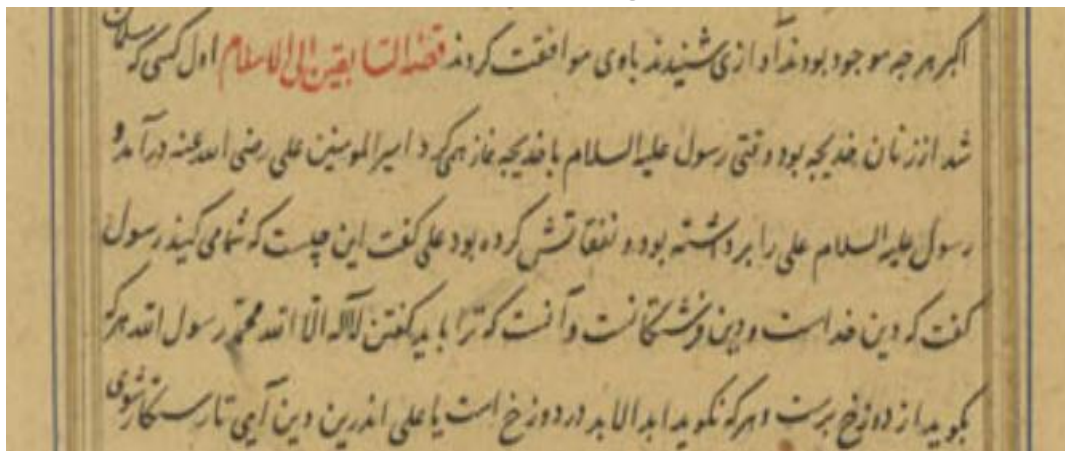 اکبر هر چه موجود بودند آوازی شنیدند با وی موافقت کردند قصة السابقین الی الاسلام اول کسی که مسلمان
شد از زنان خدیجه بود وقتی رسول علیه السلام با خدیجه نماز همی کرد امیرالمومنین علی رضی الله عنه درآمد و
رسول علیه السلام علی را برداشته بود و نفقاتش کرده بود علی گفت این چیست که شما می کنید رسول
گفت که دین خداست و دین فرشتگانست و آنست که ترا باید گفتن لا اله الا الله محمد رسول الله هر که
بگوید از دوزخ برست و هر که نگوید ابد الابد در دوزخ است یا علی اندرین دین آیی تا رستگار شوی